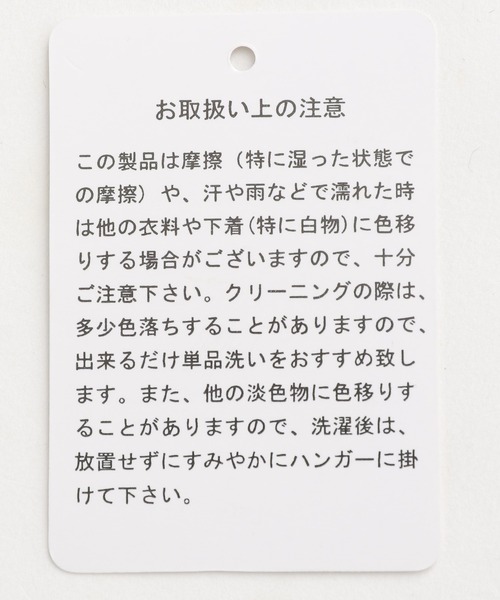 お取扱い上の注意
この製品は摩擦（特に湿った状態で
の摩擦）や、汗や雨などで濡れた時
は他の衣料や下着(特に白物)に色移
りする場合がございますので、十分
ご注意下さい。クリーニングの際は、
多少色落ちすることがありますので、
出来るだけ単品洗いをおすすめ致し
ます。また、他の淡色物に色移りす
ることがありますので、洗濯後は、
放置せずにすみやかにハンガーに掛
けて下さい。